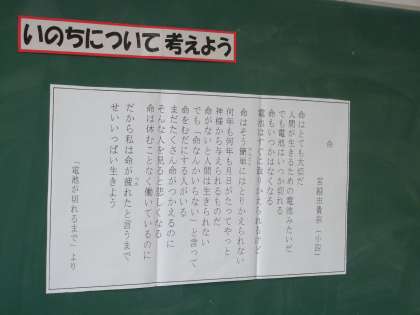 いのちについて考えよう
命
宮越由貴奈（小四）
命はとても大切だ
人間が生きるための電池みたいだ
でも電池はいつか切れる
命もいつかはなくなる
電池はすぐにとりかえられるけど
命はそう簡単にはとりかえられない
何年も何年も月日がたってやっと
神様から与えられるものだ
命がないと人間は生きられない
でも「命なんかいらない」と言って
命をむだにする人がいる
まだたくさん命がつかえるのに
そんな人を見ると悲しくなる
命は休むことなく働いているのに
だから私は命が疲れたと言うまで
せいいっぱい生きよう
「電池が切れるまで」より